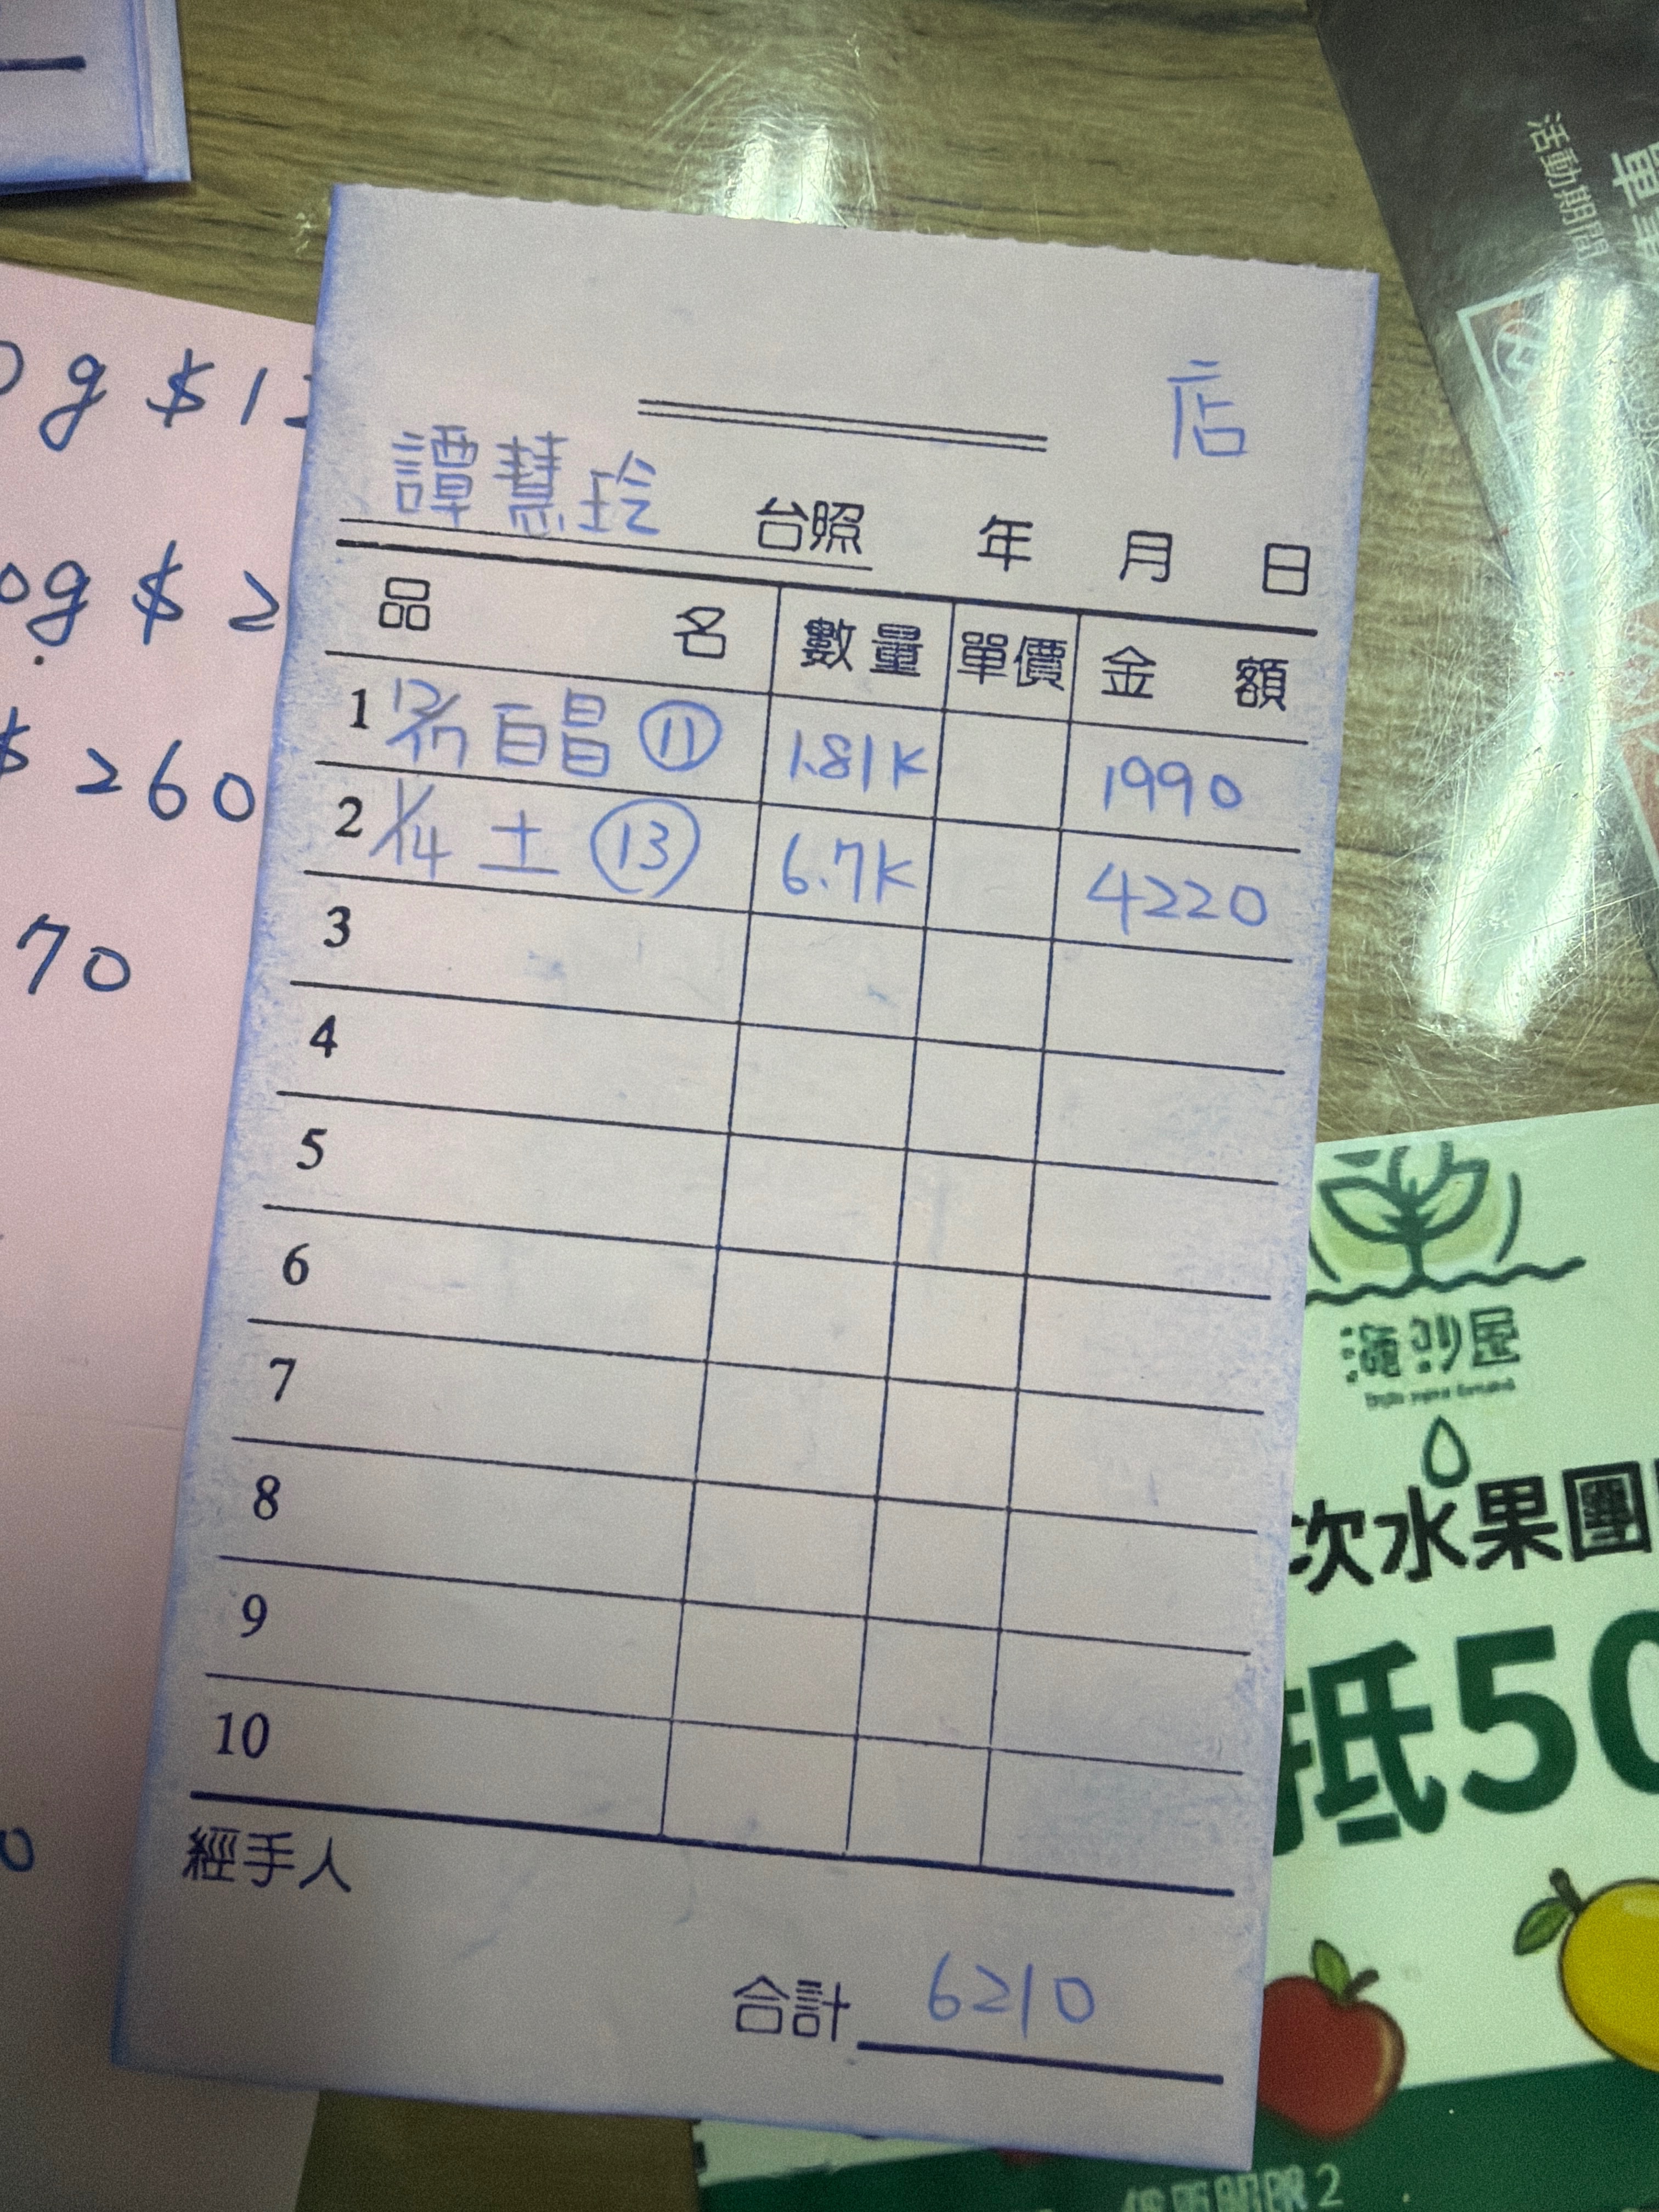 店
譚慧玲 台照 年 月 日
品 名 數量 單價 金 額
1 12/17 白昌 ⑪ 1.81K 1990
2 1/14 土 ⑬ 6.7K 4220
3
4
5
6
7
8
9
10
經手人
合計 6210
g $1
0g $2
$260
70
活動期間
水果團
抵50